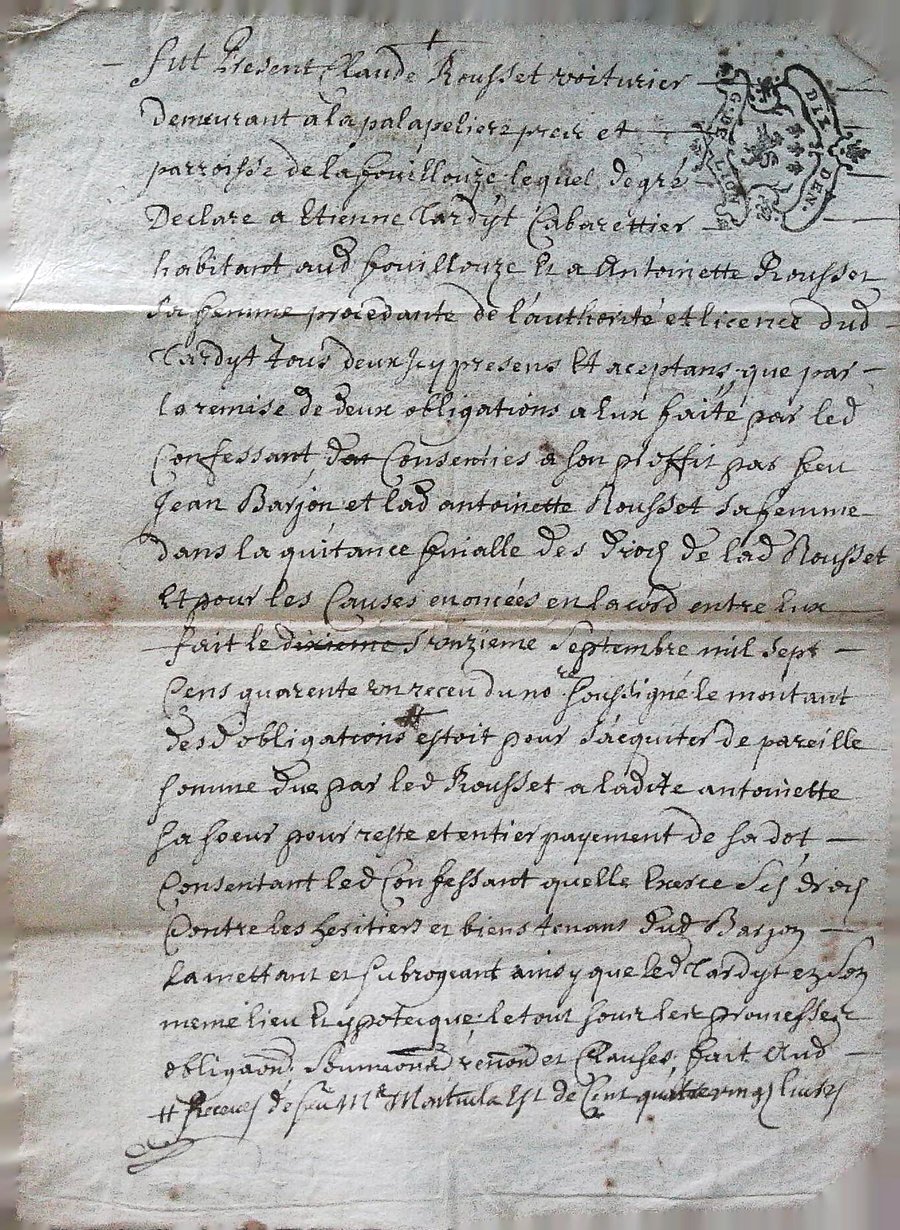 fut Present Claude Rousset voiturier
demeurant a la palapeliere et
parroisse de la fouillouze lequel de gré
Declare a Etienne Tardyt Cabarettier
habitant aud fouillouze Et a Antoinette Rousset
sa femme procedante de l'authorité et licence dud
Tardyt tous deux Icy presens Et aceptans, que par
la remise de deux obligations a Eux faite par led
Confessant, Consenties a son proffit par feu
Jean Barjon et lad antoinette Rousset sa femme
dans la quitance finialle des droits de lad Rousset
Et pour les Causes enoncées en lacord entre Eux
fait le dixieme onzieme Septembre mil Sept
Cens quarente receu du no.re soussigné le montant
desd obligations # estoit pour s'acquiter de pareille
somme due par led Rousset a ladite antoinette
sa soeur pour reste et entier payement de sa dot
Consentant led Confessant quelle Exerce Ses droits
Contre les heritiers et biens tenans dud Barjon
La mettant et subrogeant ainsy que led Tardyt en Son
meme lieu Et ypoteque; le tout sous les promesses
obligaon̄s Soumission renōn et Clauses, fait Aud
# Receues de feu M.e Est de Cent quatre vingt livres
G. DE LION
DIX DEN.